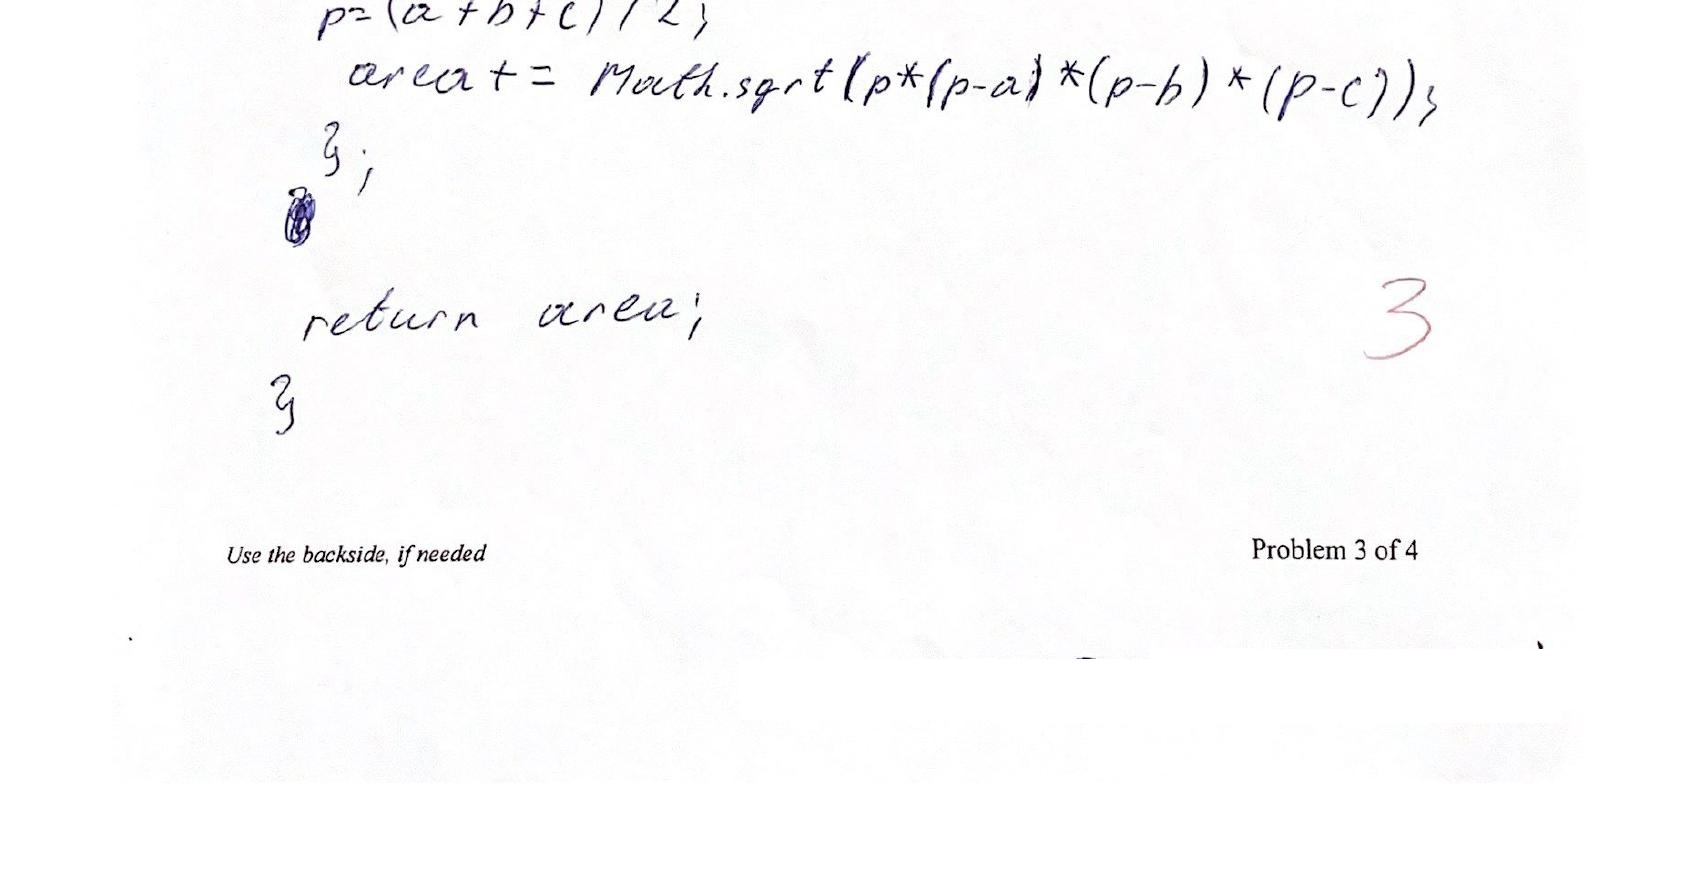 p=(a+b+c)/2;
area+= Math.sqrt(p*(p-a)*(p-b)*(p-c));
};
return area;
3
}
Use the backside, if needed
Problem 3 of 4